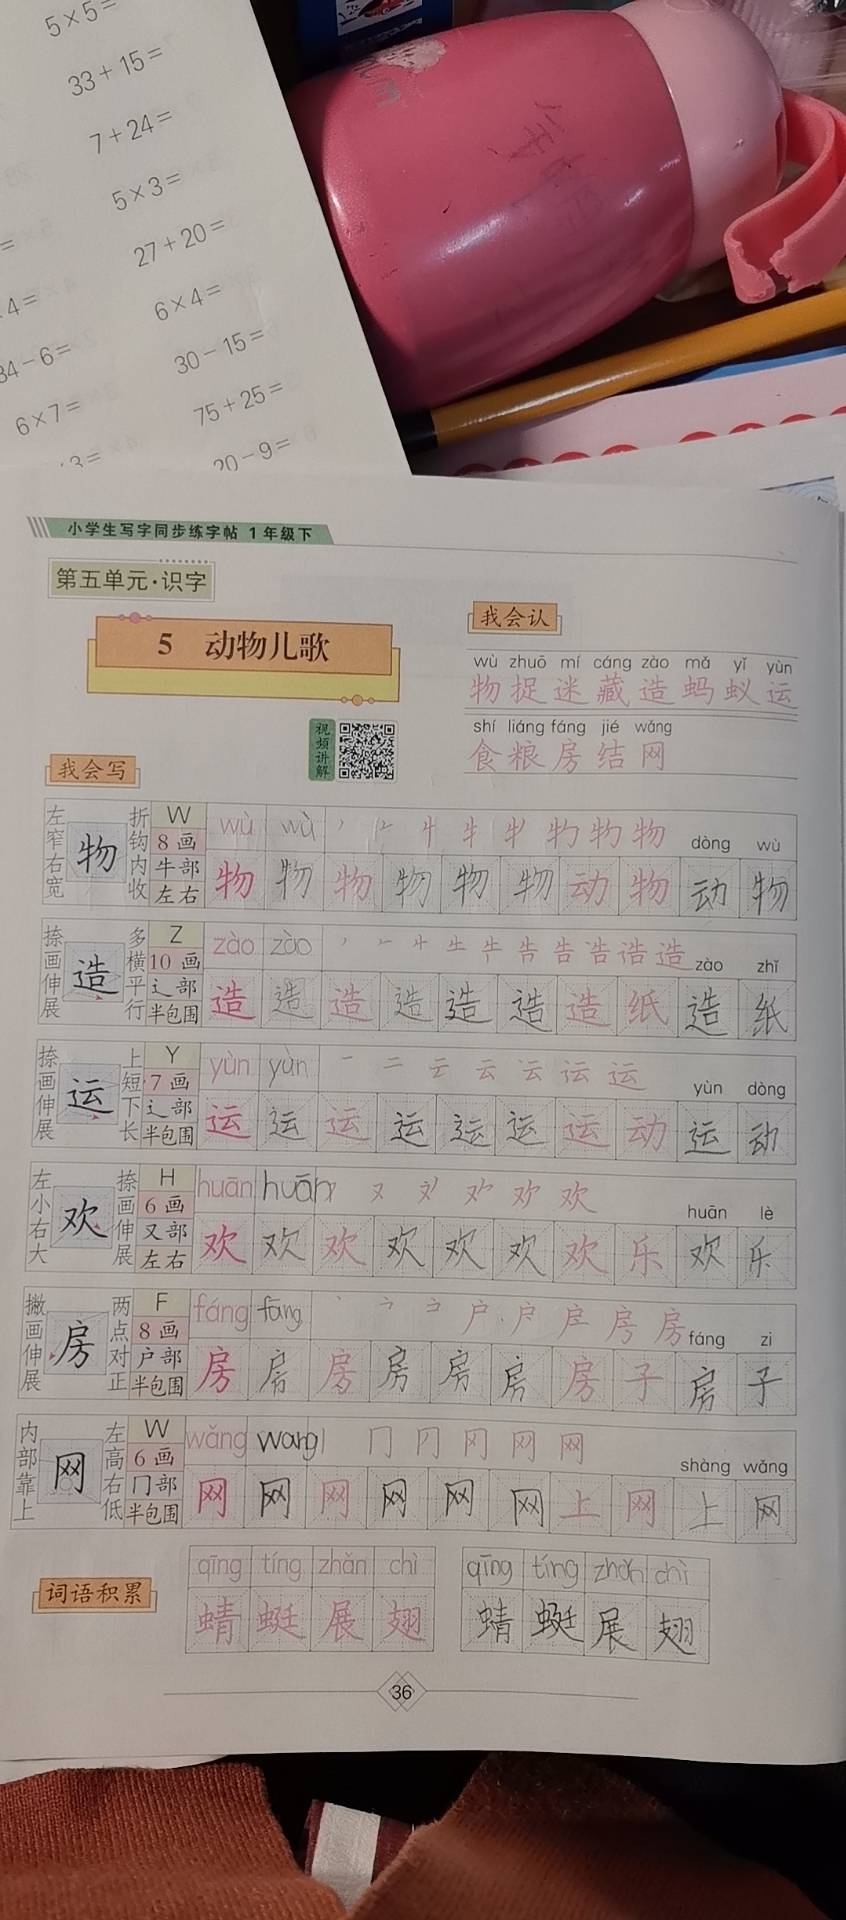 5×5=
33+15=
7+24=
5×3=
27+20=
6×4=
4=
30-15=
34-6=
75+25=
6×7=
20-9=
3=
小学生写字同步练字帖 1年级下
第五单元·识字
5 动物儿歌
我会认
wù zhuō mí cáng zào mǎ yǐ yùn
物捉迷藏造蚂蚁运
shí liáng fáng jié wǎng
食粮房结网
视频讲解
我会写
左窄右宽 物 折钩内收 W 8画 牛部 左右 wù wù dòng wù
物 物 物 物 物 物 动 物 动 物
捺画伸展 造 多横平行 Z 10画 辶部 半包围 zào zào zào zhǐ
造 造 造 造 造 造 造 纸 造 纸
捺画伸展 运 上短下长 Y 7画 辶部 半包围 yùn yùn yùn dòng
运 运 运 运 运 运 运 动 运 动
左小右大 欢 捺画伸展 H 6画 又部 左右 huān huān huān lè
欢 欢 欢 欢 欢 欢 欢 乐 欢 乐
撇画伸展 房 两点对正 F 8画 户部 半包围 fáng fāng fáng zi
房 房 房 房 房 房 房 子 房 子
内部靠上 网 左高右低 W 6画 冂部 半包围 wǎng wang shàng wǎng
网 网 网 网 网 网 上 网 上 网
词语积累
qīng tíng zhǎn chì qīng tíng zhǎn chì
蜻 蜓 展 翅 蜻 蜓 展 翅
36